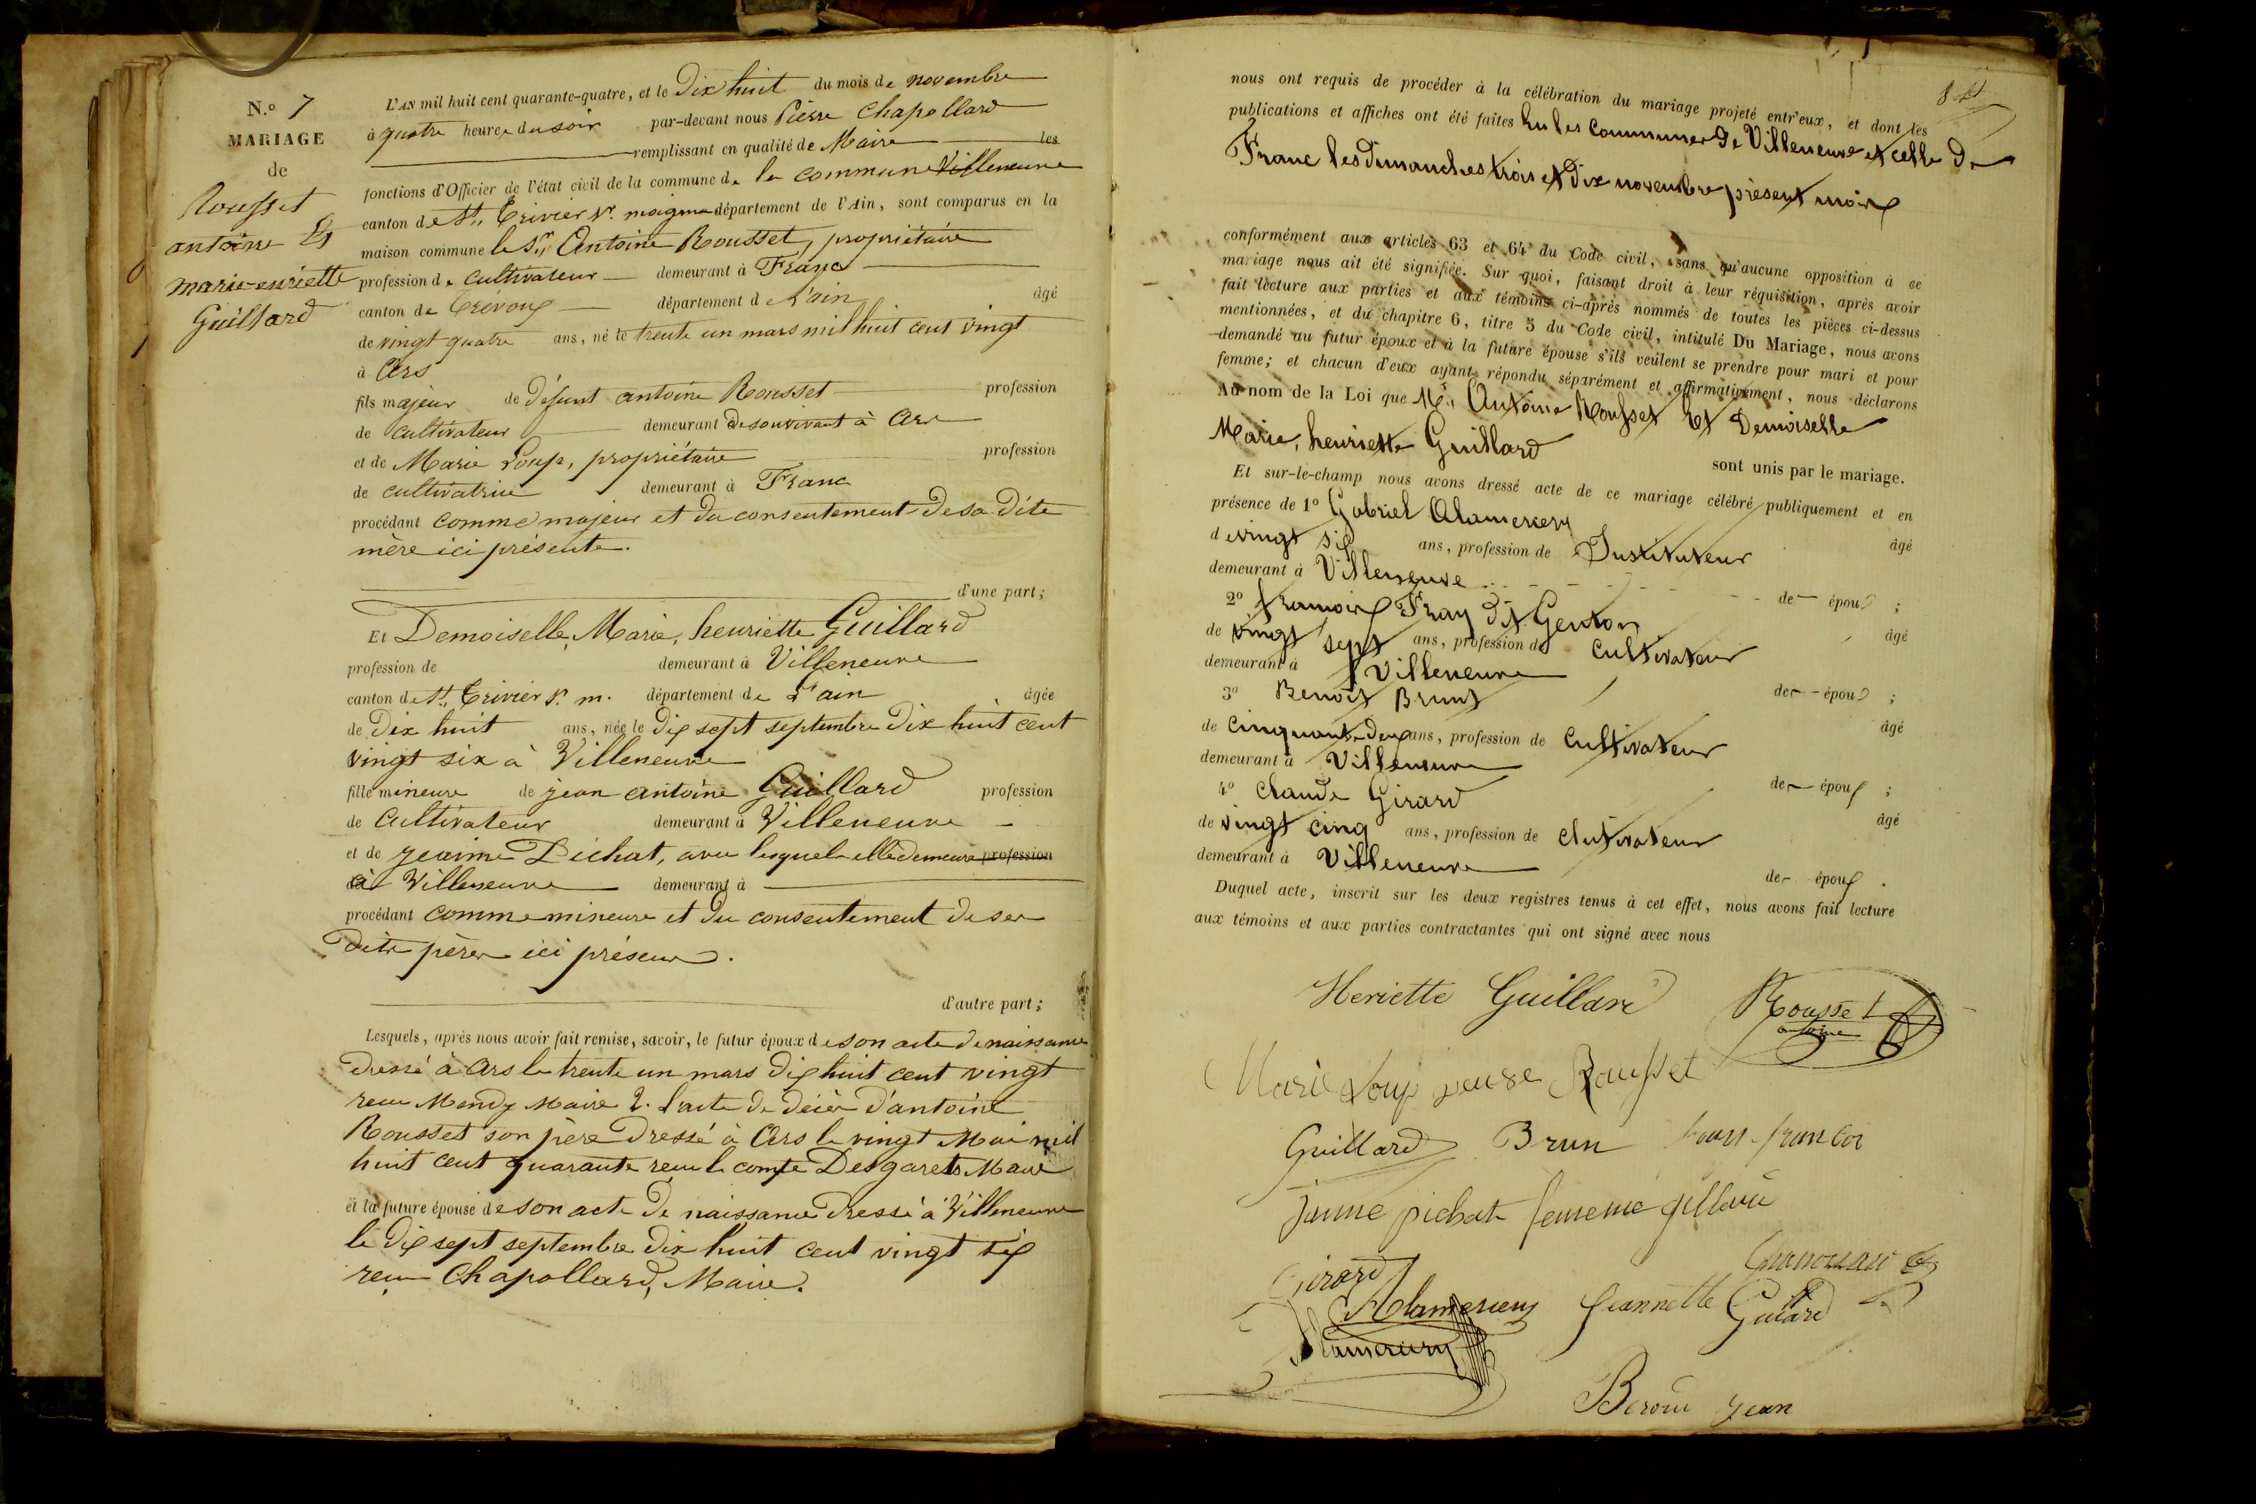 N.o 7
MARIAGE
de
Rousset
antoine Et
marie-enriette
Guillard
L'AN mil huit cent quarante-quatre, et le Dix huit du mois de novembre
à quatre heures du soir par-devant nous Pierre Chapollard
remplissant en qualité de Maire les
fonctions d'Officier de l'état civil de la commune de la commune Villeneuve
canton de St, Trivier sr. moignans département de l'Ain, sont comparus en la
maison commune le Sr, Antoine Rousset, propriétaire
profession de cultivateur demeurant à Franc
canton de Trevoux département de l'ain âgé
de vingt quatre ans, né le trente un mars mil huit cent vingt
à Ars
fils majeur de défunt antoine Rousset profession
de cultivateur demeurant de son vivant à Ars
et de Marie Loup, propriétaire profession
de cultivatrice demeurant à Franc
procédant comme majeur et du consentement de sa dite
mère ici présente.
d'une part;
Et Demoiselle, Marie, henriette Guillard
profession de demeurant à Villeneuve
canton de St, Trivier s. m. département de l'ain âgée
de Dix huit ans, née le dix sept septembre dix huit cent
vingt six à Villeneuve
fille mineure de jean antoine Guillard profession
de cultivateur demeurant à Villeneuve
et de jeanne Pichat, avec lesquels elle demeure profession
à Villeneuve demeurant à
procédant comme mineure et du consentement de ses
dits pères ici présens.
d'autre part;
Lesquels, après nous avoir fait remise, savoir, le futur époux de son acte de naissance
dressé à Ars le trente un mars dix huit cent vingt
reçu Mandy Maire 2. l'acte de décès d'antoine
Rousset son père dressé à Ars le vingt Mai mil
huit cent quarante reçu le comte Desgarets Maire
et la future épouse de son acte de naissance dressé à Villeneuve
le dix sept septembre dix huit cent vingt six
reçu Chapollard, Maire.
nous ont requis de procéder à la célébration du mariage projeté entr'eux, et dont les
publications et affiches ont été faites En les Communes de Villeneuve et celle de
Franc les dimanches trois et dix novembre présent mois
conformément aux articles 63 et 64 du Code civil, sans qu'aucune opposition à ce
mariage nous ait été signifiée. Sur quoi, faisant droit à leur réquisition, après avoir
fait lecture aux parties et aux témoins ci-après nommés de toutes les pièces ci-dessus
mentionnées, et du chapitre 6, titre 5 du Code civil, intitulé Du Mariage, nous avons
demandé au futur époux et à la future épouse s'ils veulent se prendre pour mari et pour
femme; et chacun d'eux ayant répondu séparément et affirmativement, nous déclarons
Au nom de la Loi que Mr, Antoine Rousset Et Demoiselle
Marie, henriette Guillard sont unis par le mariage.
Et sur-le-champ nous avons dressé acte de ce mariage célébré publiquement et en
présence de 1o Gabriel Alamercery âgé
de vingt six ans, profession de Instituteur
demeurant à Villeneuve de épou ;
2o françois Fray dit Genton âgé
de vingt sept ans, profession de Cultivateur
demeurant à Villeneuve de épou ;
3o Benoit Brun âgé
de Cinquante-deux ans, profession de Cultivateur
demeurant à Villeneuve de épou ;
4o Claude Girard âgé
de vingt cinq ans, profession de Clutivateur
demeurant à Villeneuve de épou .
Duquel acte, inscrit sur les deux registres tenus à cet effet, nous avons fait lecture
aux témoins et aux parties contractantes qui ont signé avec nous
Heriette Guillard Rousset
antoine
Marie Loup veuse Rousset
Guillard Brun
janne pichat
Girard
Alamercery jeannette Guiard
Alamercery
jean